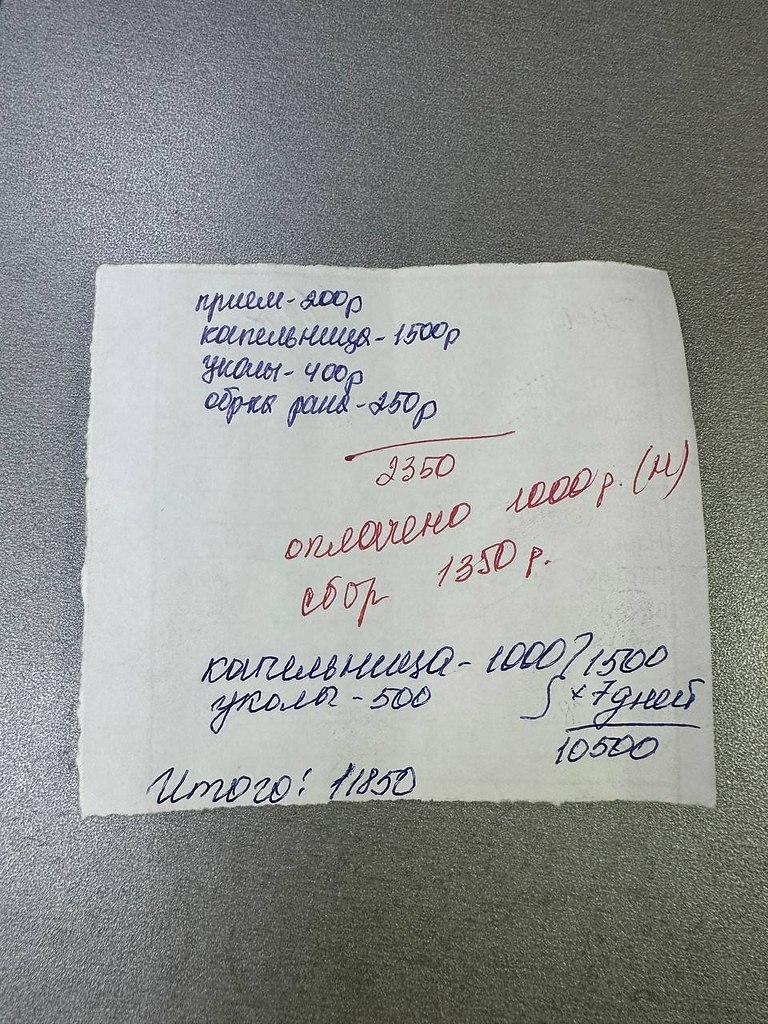 прием - 200р
капельница - 1500р
уколы - 400р
обр-ка рана - 250р
2350
оплачено 1000 р. (Н)
сбор 1350 р.
капельница - 1000 } 1500
уколы - 500 х 7 дней
10500
Итого: 11850